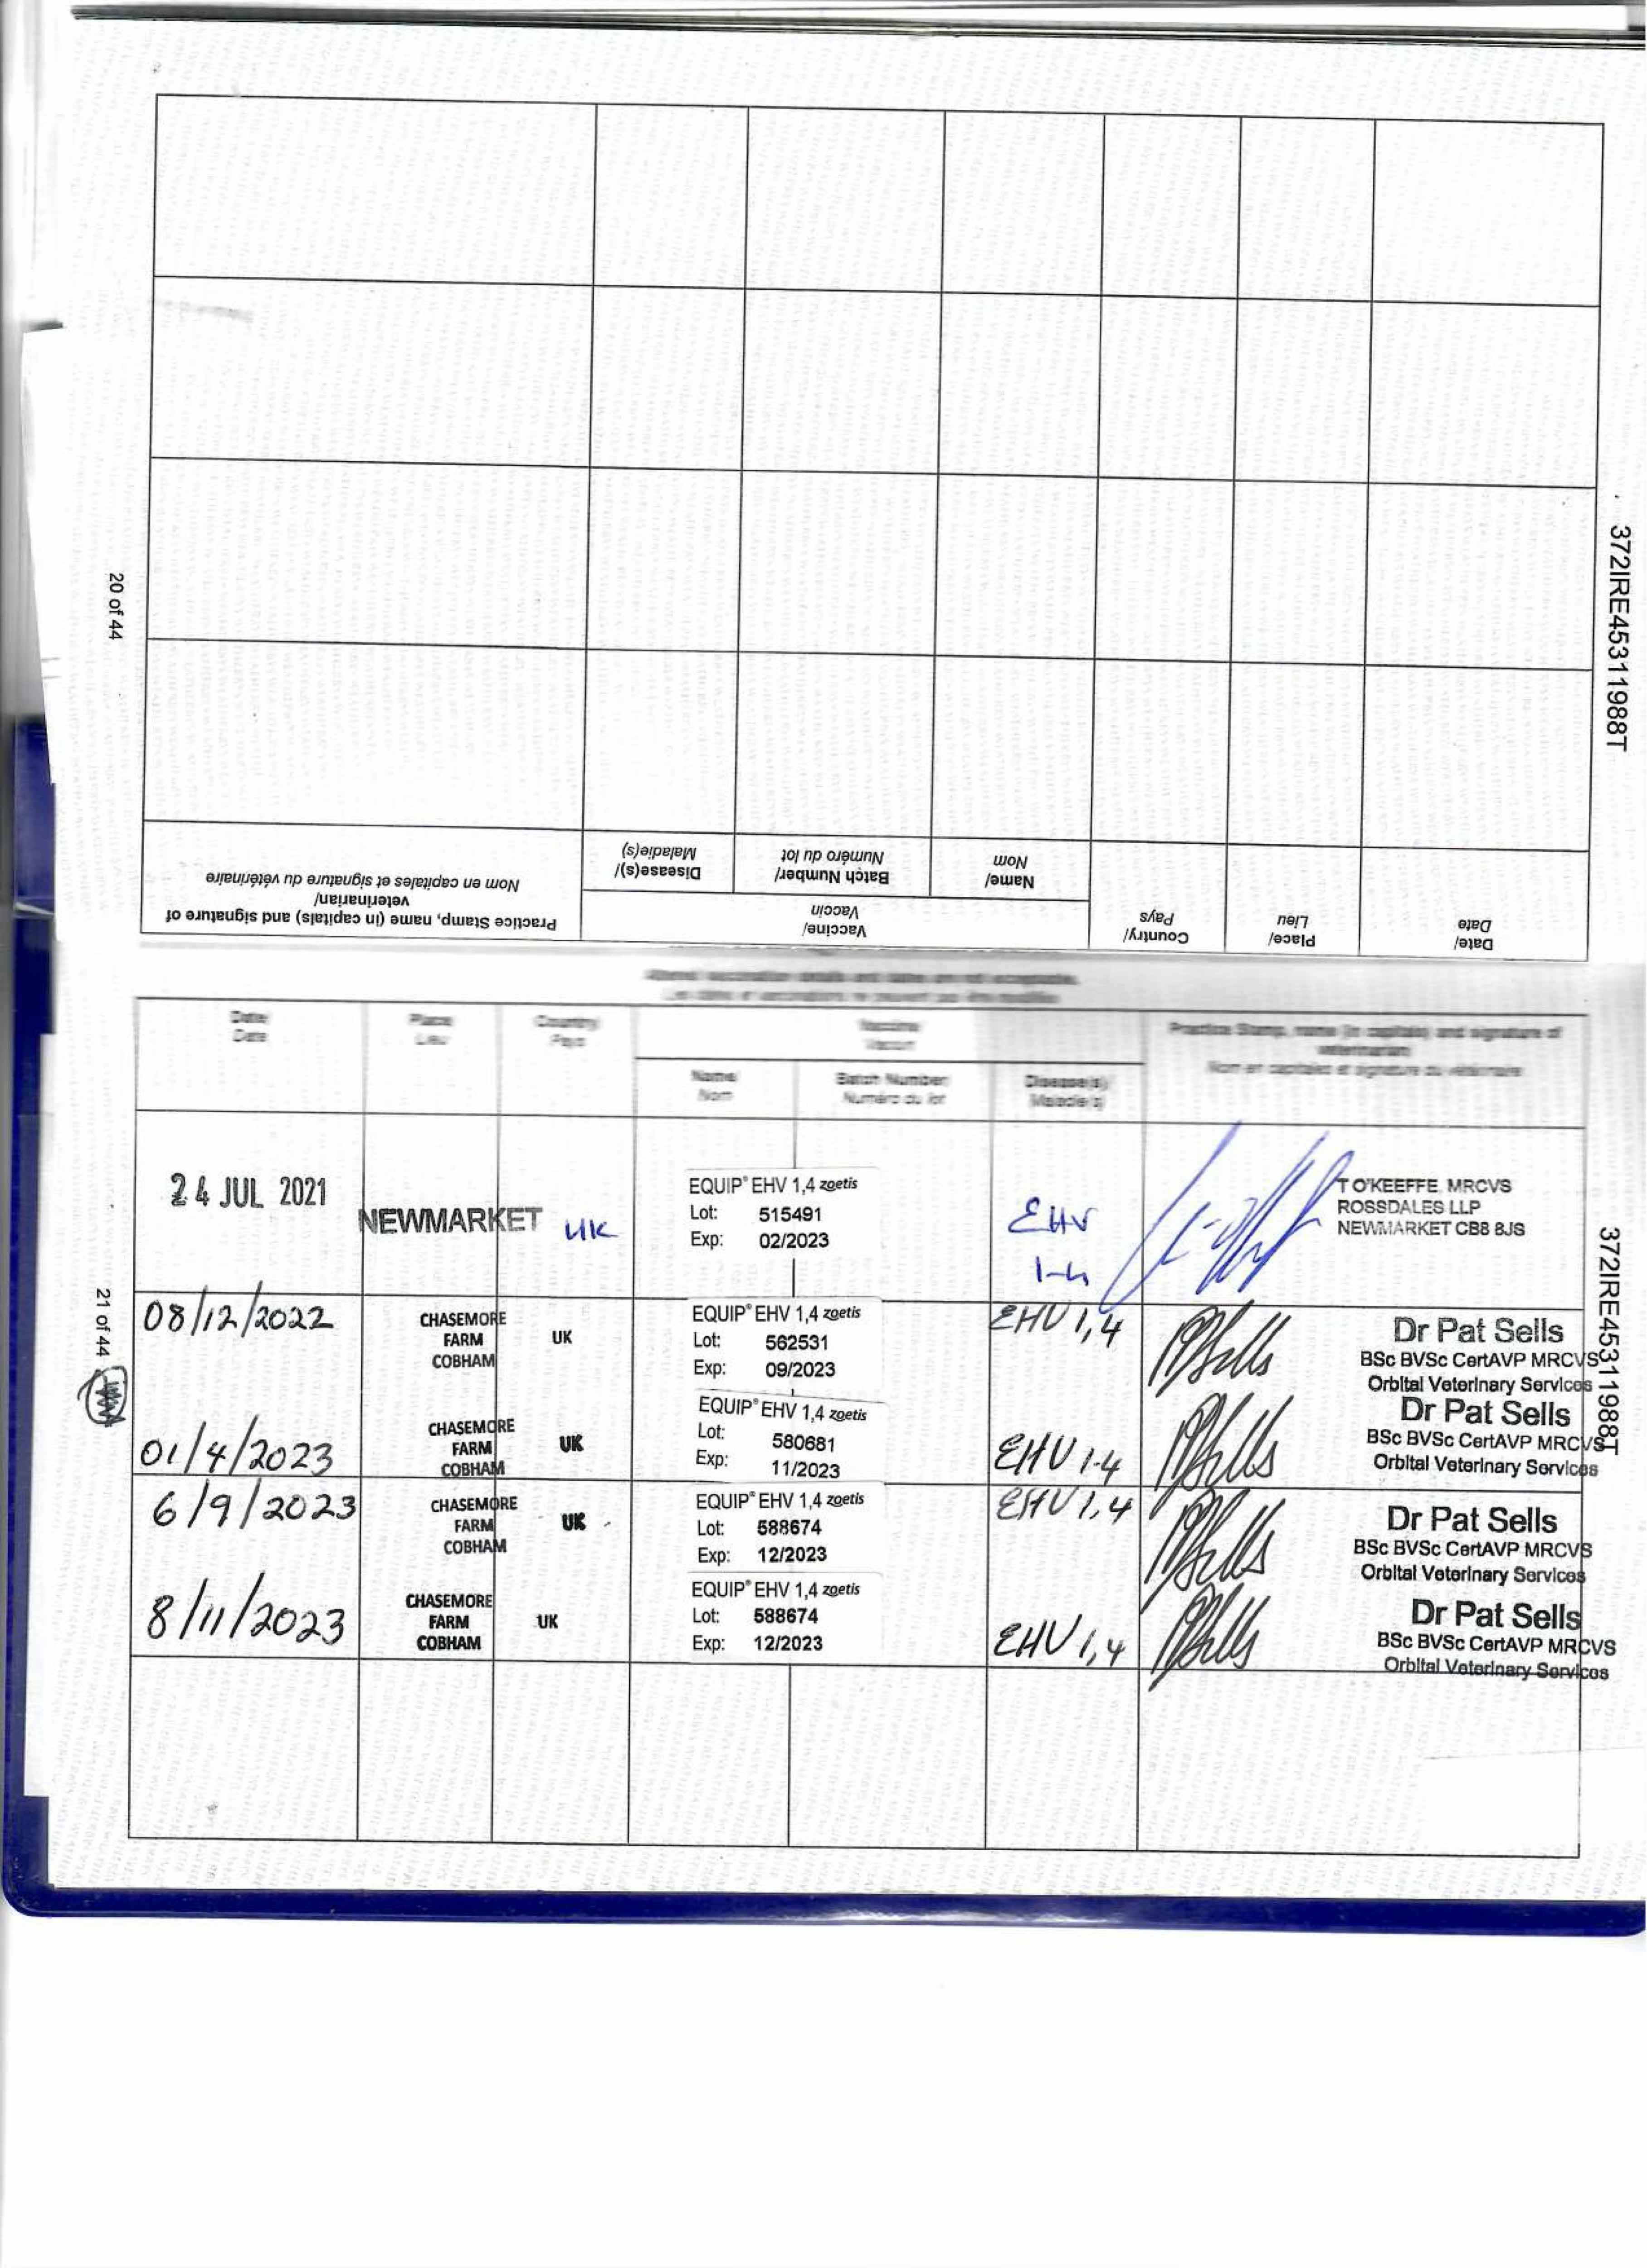 Practice Stamp, name (in capitals) and signature of
veterinarian/
Nom en capitales et signature du vétérinaire
Disease(s)/
Maladie(s)
Vaccine/
Vaccin
Batch Number/
Numéro du lot
Name/
Nom
Country/
Pays
Place/
Lieu
Date/
Date
20 of 44
372IRE45311988T
Altered vaccination details and dates are not acceptable.
Date
Date
Place
Lieu
Country
Pays
Vaccine
Vaccin
Practice Stamp, name (in capitals) and signature of
veterinarian
Nom en capitales et signature du vétérinaire
Name
Nom
Batch Number
Numéro du lot
Disease(s)
Maladie(s)
24 JUL 2021
NEWMARKET UK
EQUIP® EHV 1,4 zoetis
Lot: 515491
Exp: 02/2023
EHV
1-4
T O'KEEFFE MRCVS
ROSSDALES LLP
NEWMARKET CB8 8JS
08/12/2022
CHASEMORE
FARM
COBHAM
UK
EQUIP® EHV 1,4 zoetis
Lot: 562531
Exp: 09/2023
EHV 1,4
PSells
Dr Pat Sells
BSc BVSc CertAVP MRCVS
Orbital Veterinary Services
01/4/2023
CHASEMORE
FARM
COBHAM
UK
EQUIP® EHV 1,4 zoetis
Lot: 580681
Exp: 11/2023
EHV 1-4
PSells
Dr Pat Sells
BSc BVSc CertAVP MRCVS
Orbital Veterinary Services
6/9/2023
CHASEMORE
FARM
COBHAM
UK
EQUIP® EHV 1,4 zoetis
Lot: 588674
Exp: 12/2023
EHV 1,4
PSells
Dr Pat Sells
BSc BVSc CertAVP MRCVS
Orbital Veterinary Services
8/11/2023
CHASEMORE
FARM
COBHAM
UK
EQUIP® EHV 1,4 zoetis
Lot: 588674
Exp: 12/2023
EHV 1,4
PSells
Dr Pat Sells
BSc BVSc CertAVP MRCVS
Orbital Veterinary Services
21 of 44
372IRE45311988T